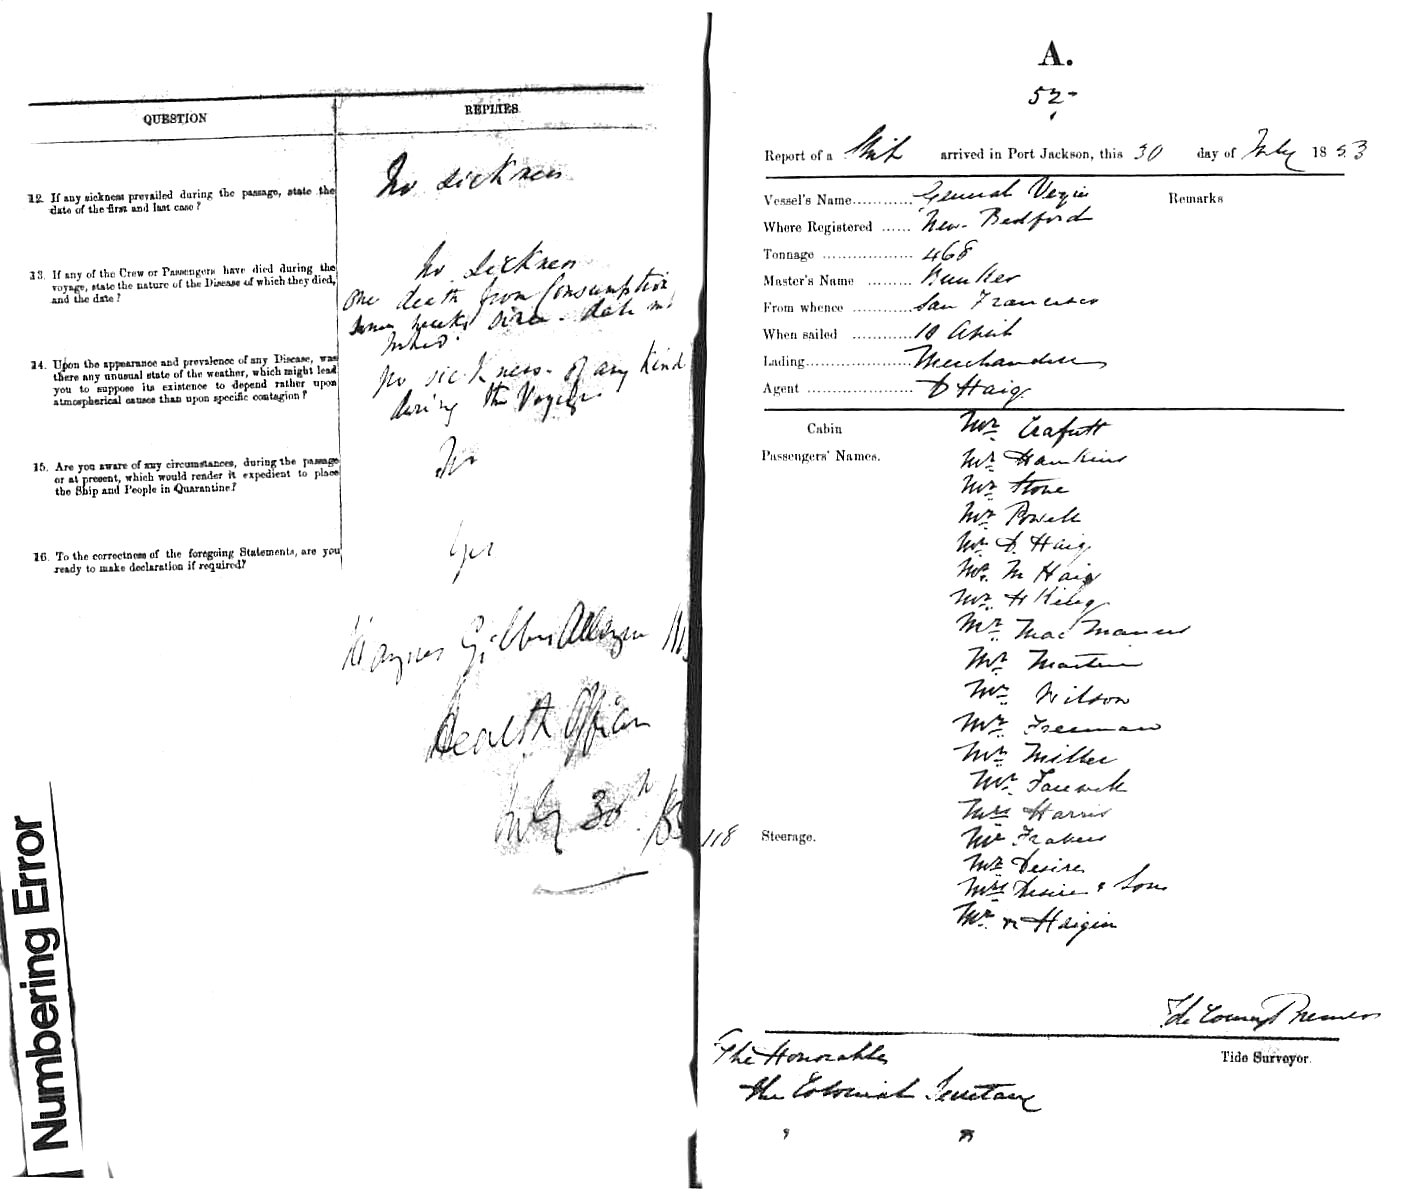 QUESTION
REPLIES
12. If any sickness prevailed during the passage, state the
date of the first and last case?
No sickness
13. If any of the Crew or Passengers have died during the
voyage, state the nature of the Disease of which they died,
and the date?
No sickness
one death from Consumption
some weeks since. date not
14. Upon the appearance and prevalence of any Disease, was
there any unusual state of the weather, which might lead
you to suppose its existence to depend rather upon
atmospherical causes than upon specific contagion?
No sickness of any kind
during the Voyage
15. Are you aware of any circumstances, during the passage
or at present, which would render it expedient to place
the Ship and People in Quarantine?
No
16. To the correctness of the foregoing Statements, are you
ready to make declaration if required?
Yes
Haynes Gibbes Alleyne
Health Officer
July 30th /53
Numbering Error
A.
52
Report of a Ship arrived in Port Jackson, this 30 day of July 1853
Vessel's Name............ General
Remarks
Where Registered ...... New Bedford
Tonnage .................. 468
Master's Name ......... Bunker
From whence ............ San Francisco
When sailed ............ 10 April
Lading..................... Merchandise
Agent ..................... D Haig
Cabin
Passengers' Names.
Mr
Mr Hawkins
Mr Stone
Mr Powell
Mr D. Haig
Mr. M Haig
Mr H King
Mr Mac Manus
Mr Martin
Mr Wilson
Mr Freeman
Mr Miller
Mr
Mrs Harris
118 Steerage.
Mr
Mr Desire
Mrs Desire & Son
Mr
Tide Surveyor.
The Honorable
the Colonial Secretary